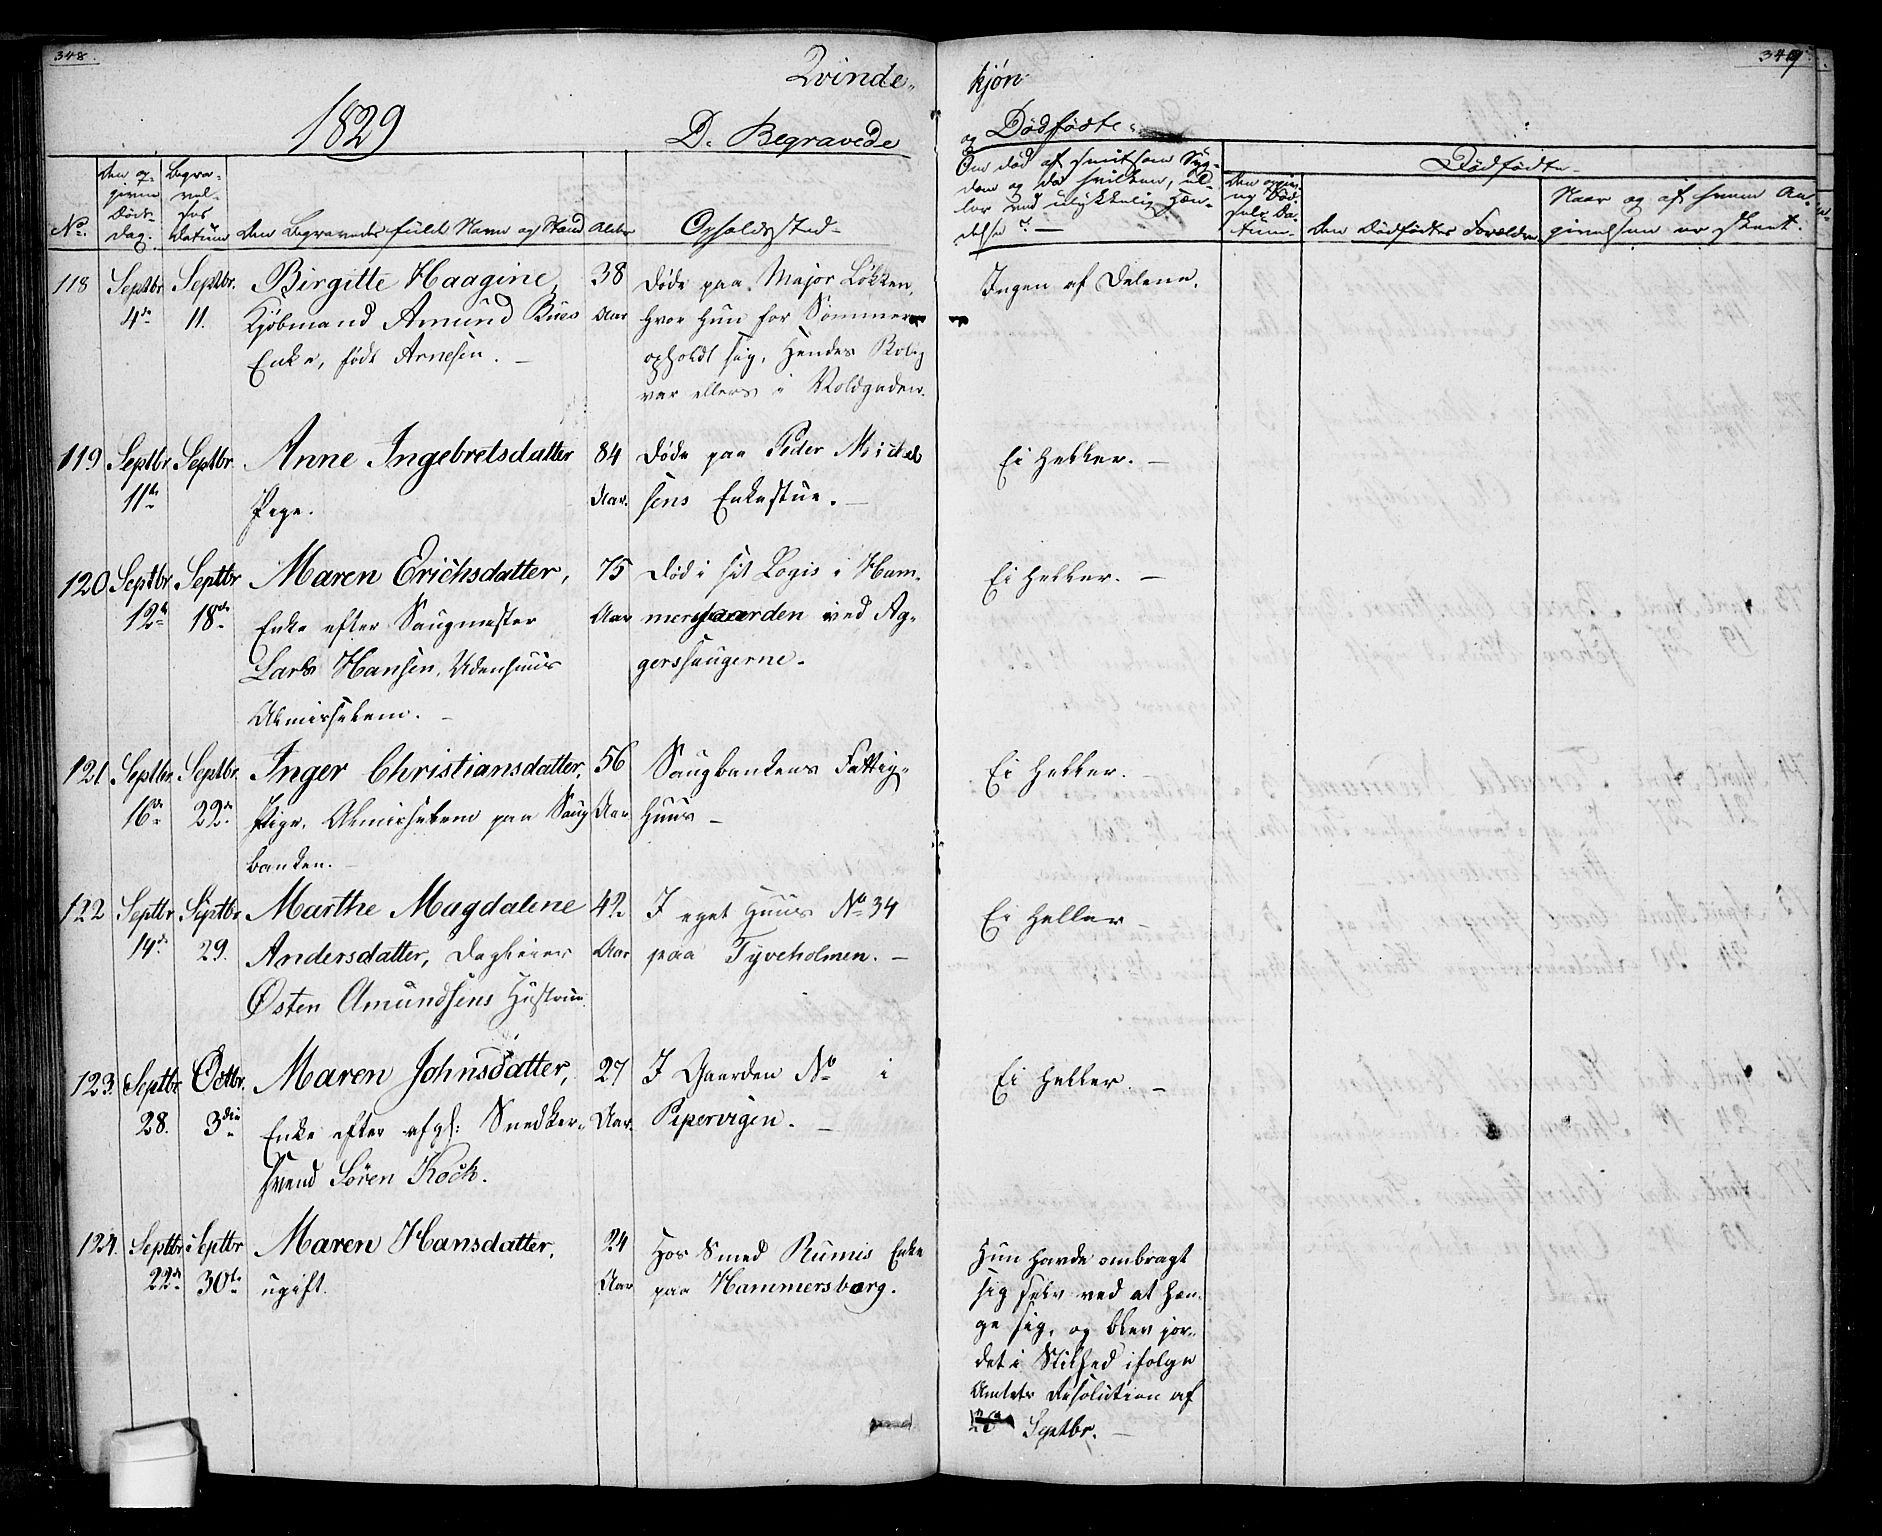 348.
349.
Qvinde-
kjøn
1829
D. Begravede
og Dødfødte.
No.
Den op-
given
Døds-
dag.
Begra-
vel-
ses
Datum
Den Begravedes fulde Navn og Stand
Alder
Opholdssted
Om død af smitsom Syg-
dom og da hvilken, el-
ler ved ulykkelig Hæn-
delse
Dødfødte
Den Dødfødtes Forældre
Naar og af hvem An-
givelsen er skeet.
118
Septbr. 4de
Septbr. 11.
Birgitte Haagine,
Kjøbmand Amund Bues
Enke, født Arnesen. —
38
Aar
Døde paa Major Løkken,
hvor hun for Sommeren
opholdt sig, hendes Bolig
var ellers i Voldgaden.
Ingen af Delene.
119
Septbr. 11te
Septbr.
Anne Ingebretsdatter
Pige.
84
Aar.
Døde paa Peder Michel
sens Enkestue. —
Ei heller. —
120
Septbr. 12te
Septbr. 18de
Maren Erichsdatter,
Enke efter Saugmester
Lars Hansen, Udenhuus
Almisselem. —
75
Aar
Død i sit Logis i Ham-
mersgaarden ved Ag-
gerssaugerne.
Ei heller. —
121
Septbr. 16de
Septbr. 22de
Inger Christiansdatter,
Pige, Almisselem paa Saug
banken. —
56
Aar
Saugbankens Fattig-
huus —
Ei heller.
122
Septbr. 14de
Septbr. 29.
Marthe Magdalene
Andersdatter, Dagleier
Østen Amundsens Hustrue.
42
Aar
I eget Huus No 34
paa Tyveholmen. —
Ei heller —
123.
Septbr. 28.
Octbr. 3die
Maren Johnsdatter,
Enke efter afg: Snedker-
svend Søren Koch.
27
Aar.
I Gaarden No i
Pipervigen. —
Ei heller. —
124.
Septbr. 22de
Septbr. 30te
Maren Hansdatter,
ugift.
24
Aar
Hos Smed Rumis Enke
paa Hammersborg.
Hun havde ombragt
sig selv ved at hæn-
ge sig, og blev jor-
det i Stilhed ifølge
Amtets Resolution af
Septbr. —